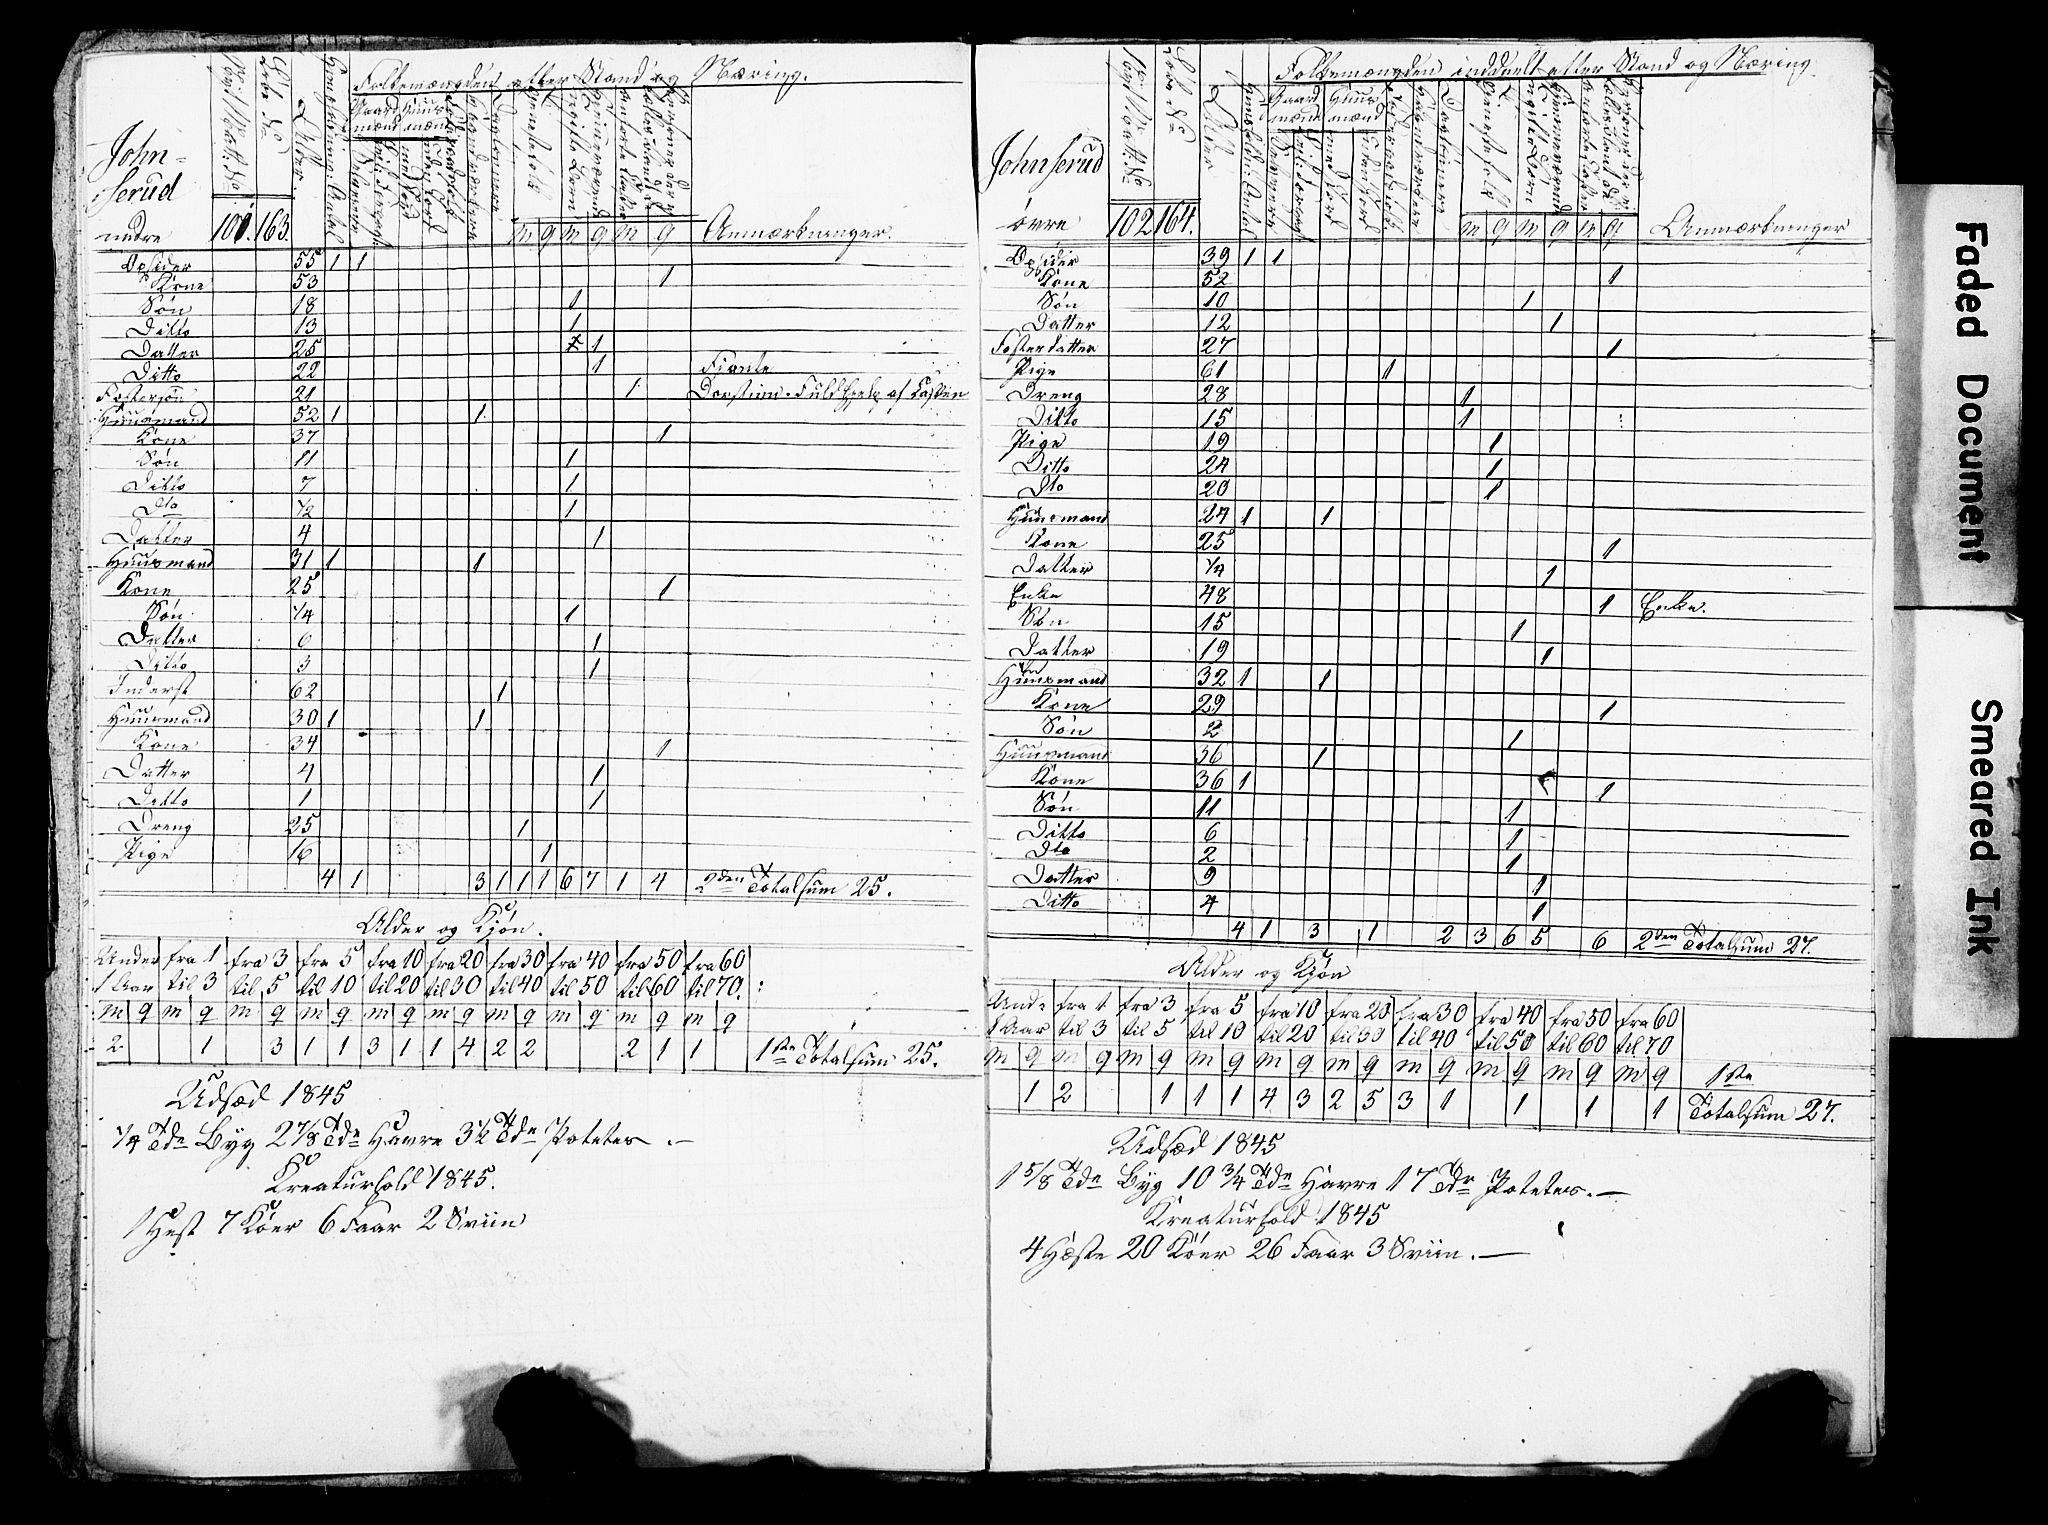 Folkemængden efter Stand og Næring.
John-
serud
nedre
101. 163.
Løbe No
Alder.
Gaard mænd
Huus mænd
m q m q m q Anmærkninger.
Opsider 55 1 1
Kone 53 1
Søn 18 1
Ditto 13 1
Datter 25 1
Ditto 22 1 Fiante
Fostersøn 21 1 af Cassen
Huusmand 52 1 1
Kone 37 1
Søn 11 1
Ditto 7 1
Dto 1/2 1
Datter 4 1
Huusmand 31 1 1
Kone 25 1
Søn 1/4 1
Datter 6 1
Ditto 3 1
Inderst 62 1
Huusmand 30 1 1
Kone 34 1
Datter 4 1
Ditto 1 1
Dreng 25 1
Pige 16 1
4 1 3 1 1 1 6 7 1 4 2den Totalsum 25.
Alder og Kjøn.
Under fra 1 fra 3 fra 5 fra 10 fra 20 fra 30 fra 40 fra 50 fra 60
1 Aar til 3 til 5 til 10 til 20 til 30 til 40 til 50 til 60 til 70.
m q m q m q m q m q m q m q m q m q m q
2 1 3 1 1 3 1 1 4 2 2 2 1 1 1ste Totalsum 25.
Udsæd 1845
1/4 Tde Byg 2 7/8 Tde Havre 3 1/2 Tde Poteter.—
Kreaturhold 1845.
1 Hest 7 Kóer 6 Faar 2 Sviin
Folkemængden inddeelt efter Stand og Næring.
Johnserud
óvre
102 164.
Løbe No
Alder
Gaard mænd
Huus mænd
m q m q m q Anmærkninger
Opsider 39 1 1
Kone 52 1
Søn 10 1
Datter 12 1
Fosterdatter 27 1
Pige 61 1
Dreng 28 1
Ditto 15 1
Pige 19 1
Ditto 24 1
Dto 20 1
Huusmand 27 1 1
Kone 25 1
Datter 1/4 1
Enke 48 1 Enke.
Søn 15 1
Datter 19 1
Huusmand 32 1 1
Kone 29 1
Søn 2 1
Huusmand 36 1
Kone 36 1 1
Søn 11 1
Ditto 6 1
Dto 2 1
Datter 9 1
Ditto 4 1
4 1 3 1 2 3 6 5 6 2den Totalsum 27.
Alder og Kjøn
Unde- fra 1 fra 3 fra 5 fra 10 fra 20 fra 30 fra 40 fra 50 fra 60
1 Aar til 3 til 5 til 10 til 20 til 30 til 40 til 50 til 60 til 70
m q m q m q m q m q m q m q m q m q m q 1ste
1 2 1 1 1 4 3 2 5 3 1 1 1 1 Totalsum 27.
Udsæd 1845
1 5/8 Tde Byg 10 3/4 Tde Havre 17 Tde Poteter.—
Kreaturhold 1845
4 Heste 20 Kóer 26 Faar 3 Sviin.—
Faded Document
Smeared Ink